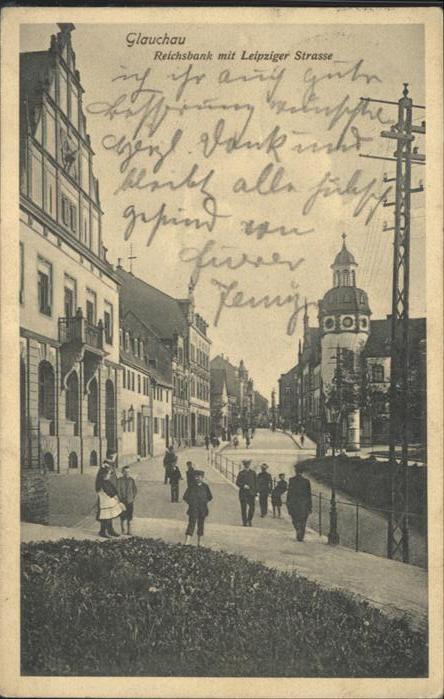 Glauchau
Reichsbank mit Leipziger Strasse
ich ihr auch gute
Besserung wünsche
Herzl. Dank und
bleibt alle hübsch
gesund von
Eurer